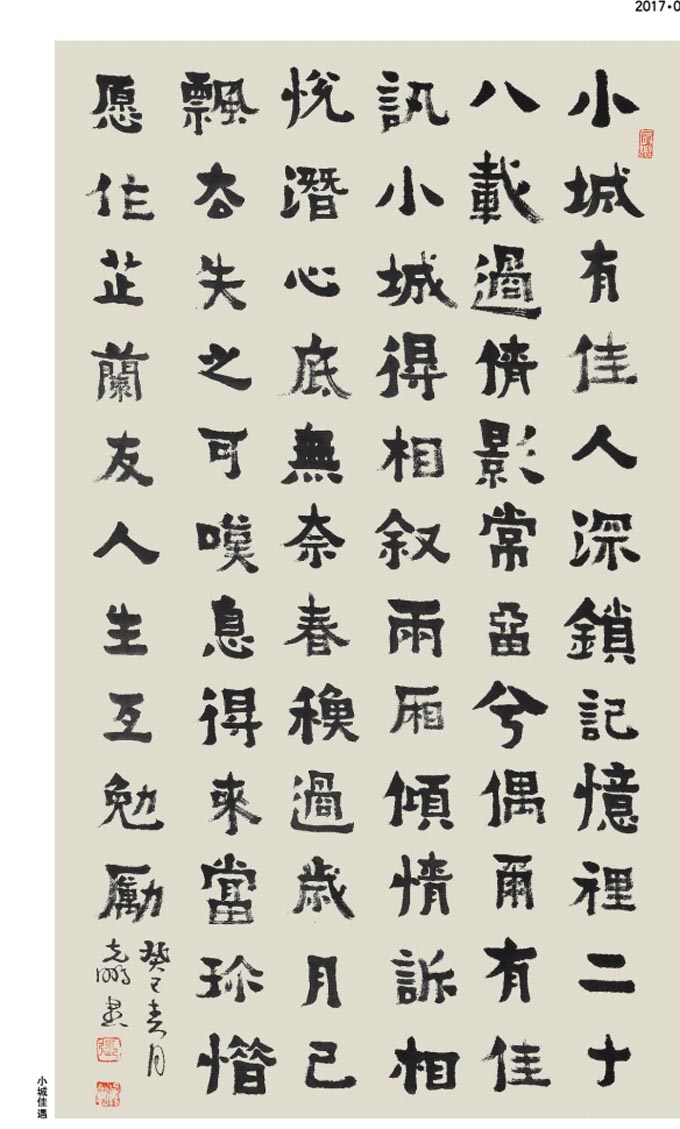 2017•0
小城有佳人深鎖記憶裡二十
八載過倩影常留兮偶爾有佳
訊小城得相叙兩厢傾情訴相
悅潛心底無奈春秋過歲月已
飄杳失之可嘆息得來當珎惜
愿作芷蘭友人生互勉勵
癸巳春月
克鵬書
小城佳遇